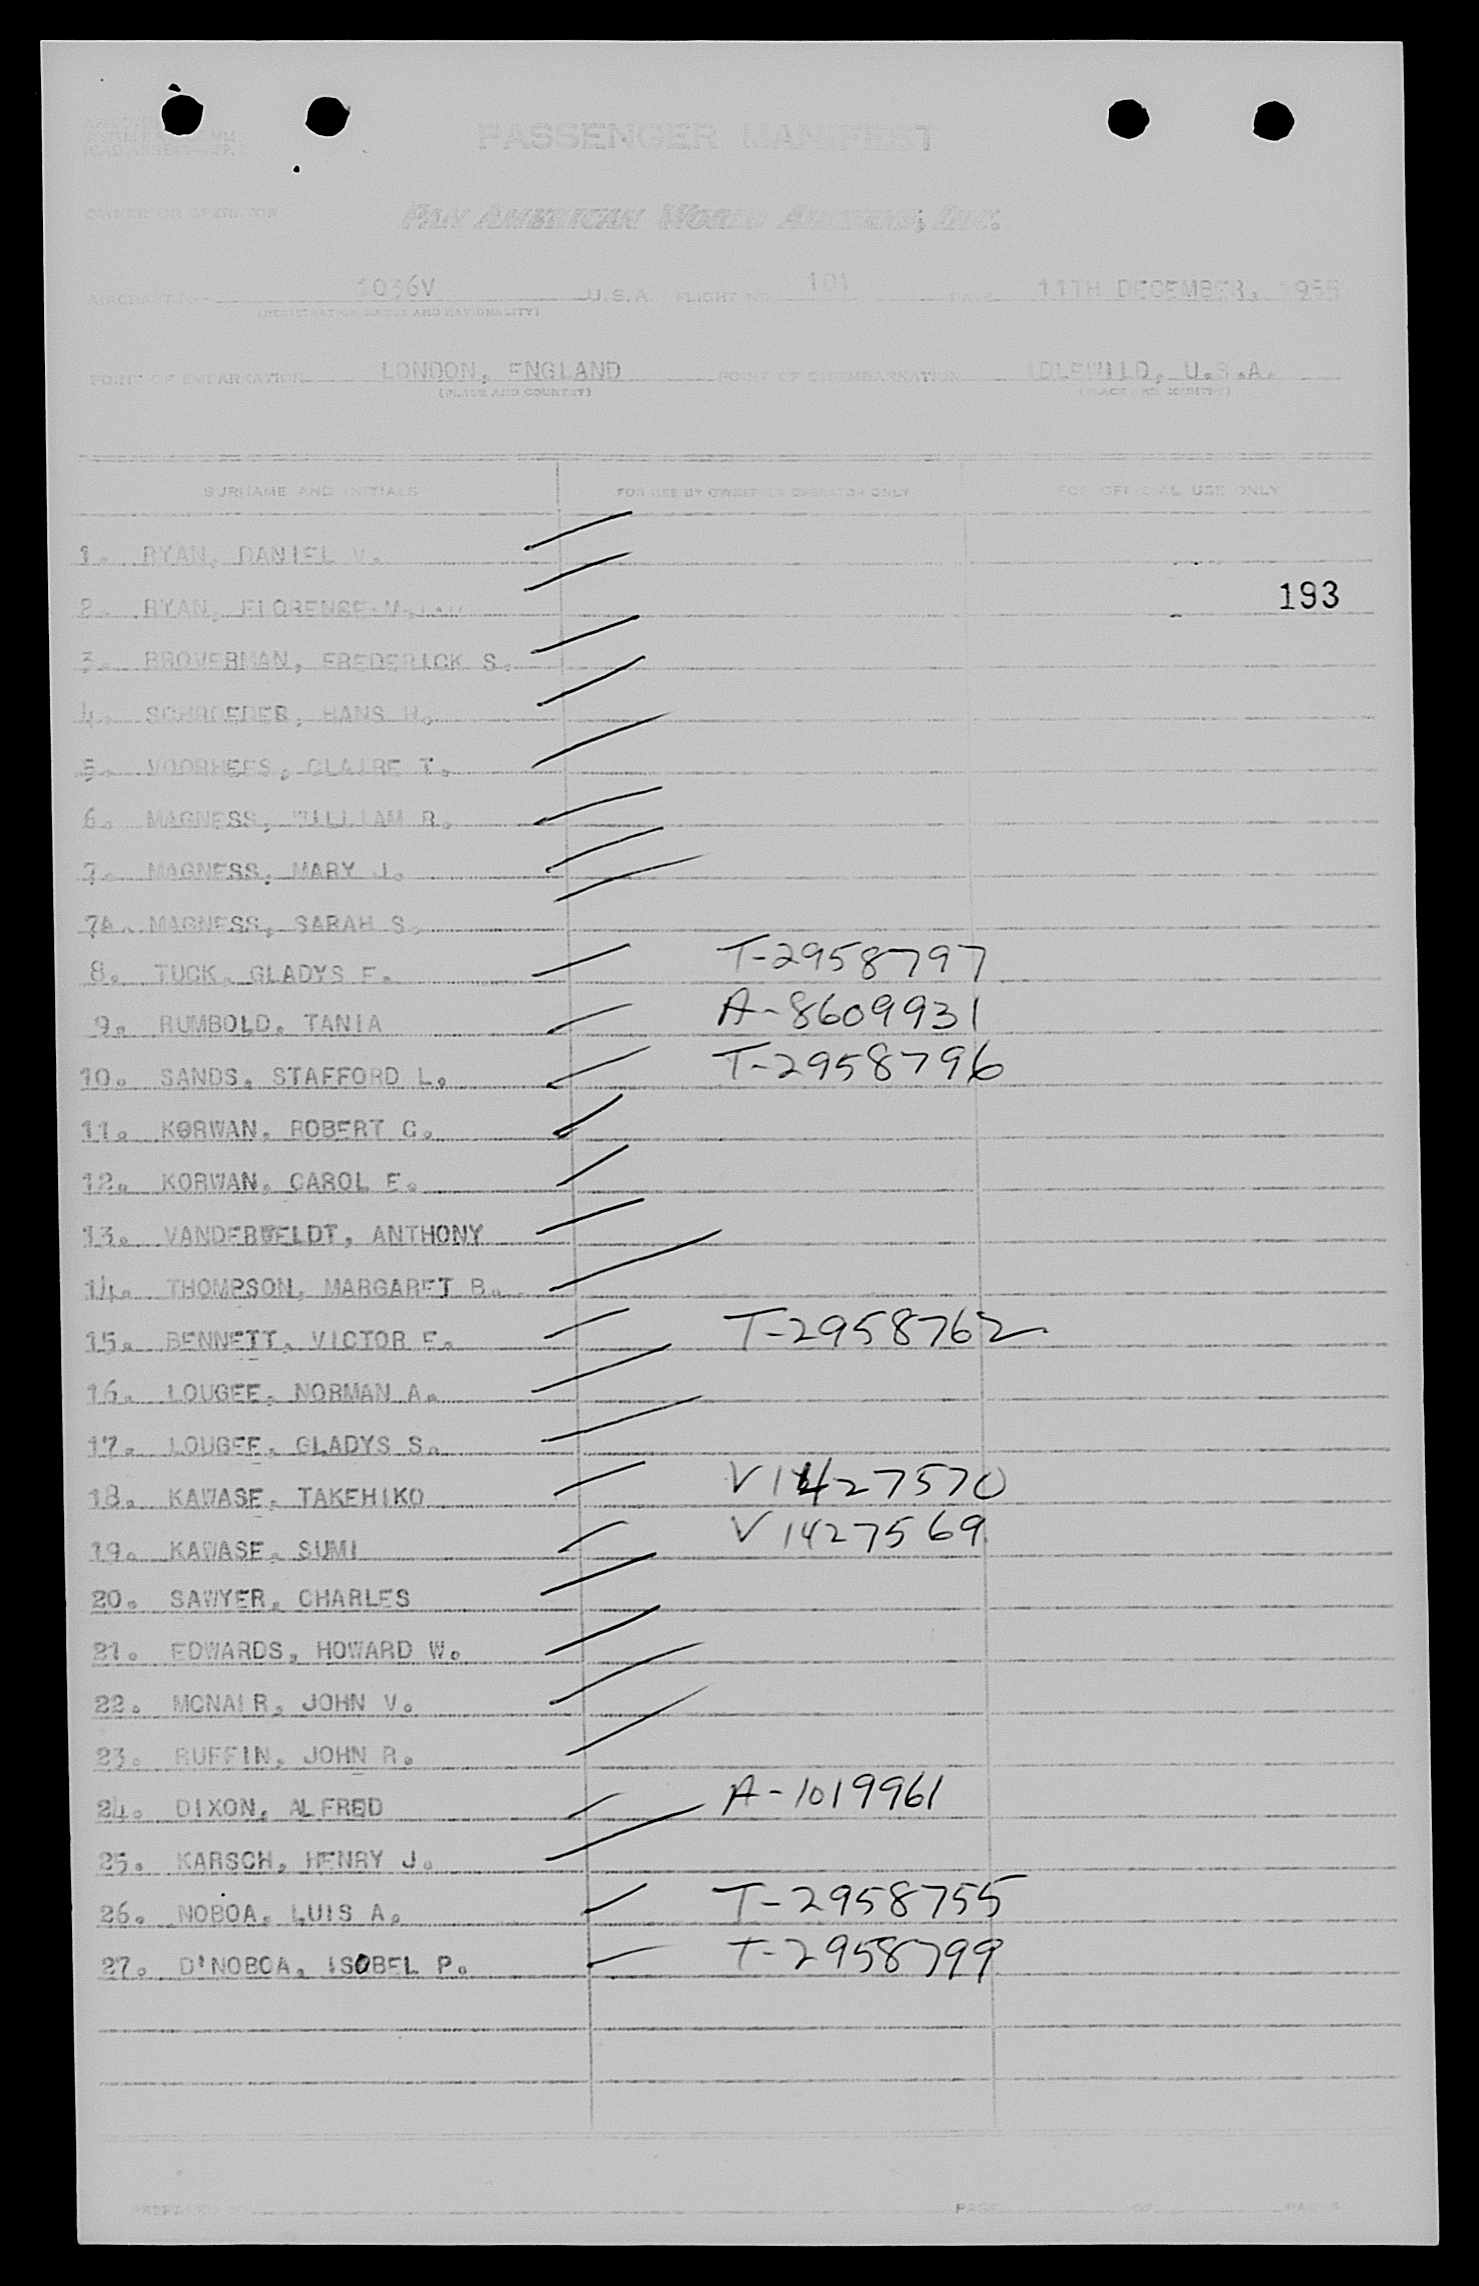 PASSENGER MANIFEST
OWNER OR OPERATOR
PAN AMERICAN WORLD AIRWAYS, INC.
AIRCRAFT No. 1036V U.S.A. FLIGHT NO. 101 DATE 11TH DECEMBER, 1955
(REGISTRATION MARKS AND NATIONALITY)
POINT OF EMBARKATION LONDON, ENGLAND POINT OF DISEMBARKATION IDLEWILD, U.S.A.
(PLACE AND COUNTRY) (PLACE AND COUNTRY)
SURNAME AND INITIALS FOR USE BY OWNER OR OPERATOR ONLY FOR OFFICIAL USE ONLY
1. RYAN, DANIEL V.
2. RYAN, FLORENCE M. 193
3. BROVERMAN, FREDERICK S.
4. SCHROEDER, HANS H.
5. VOORHEES, CLAIRE T.
6. MAGNESS, WILLIAM R.
7. MAGNESS, MARY J.
7A. MAGNESS, SARAH S.
8. TUCK, GLADYS F. T-2958797
9. RUMBOLD, TANIA A-8609931
10. SANDS, STAFFORD L. T-2958796
11. KORWAN, ROBERT C.
12. KORWAN, CAROL E.
13. VANDERWELDT, ANTHONY
14. THOMPSON, MARGARET B.
15. BENNETT, VICTOR E. T-2958762
16. LOUGEE, NORMAN A.
17. LOUGEE, GLADYS S.
18. KAWASE, TAKEHIKO V1427570
19. KAWASE, SUMI V1427569
20. SAWYER, CHARLES
21. EDWARDS, HOWARD W.
22. MCNAIR, JOHN V.
23. RUFFIN, JOHN R.
24. DIXON, ALFRED A-1019961
25. KARSCH, HENRY J.
26. NOBOA, LUIS A. T-2958755
27. D'NOBOA, ISOBEL P. T-2958799
PREPARED BY PAGE OF PAGES